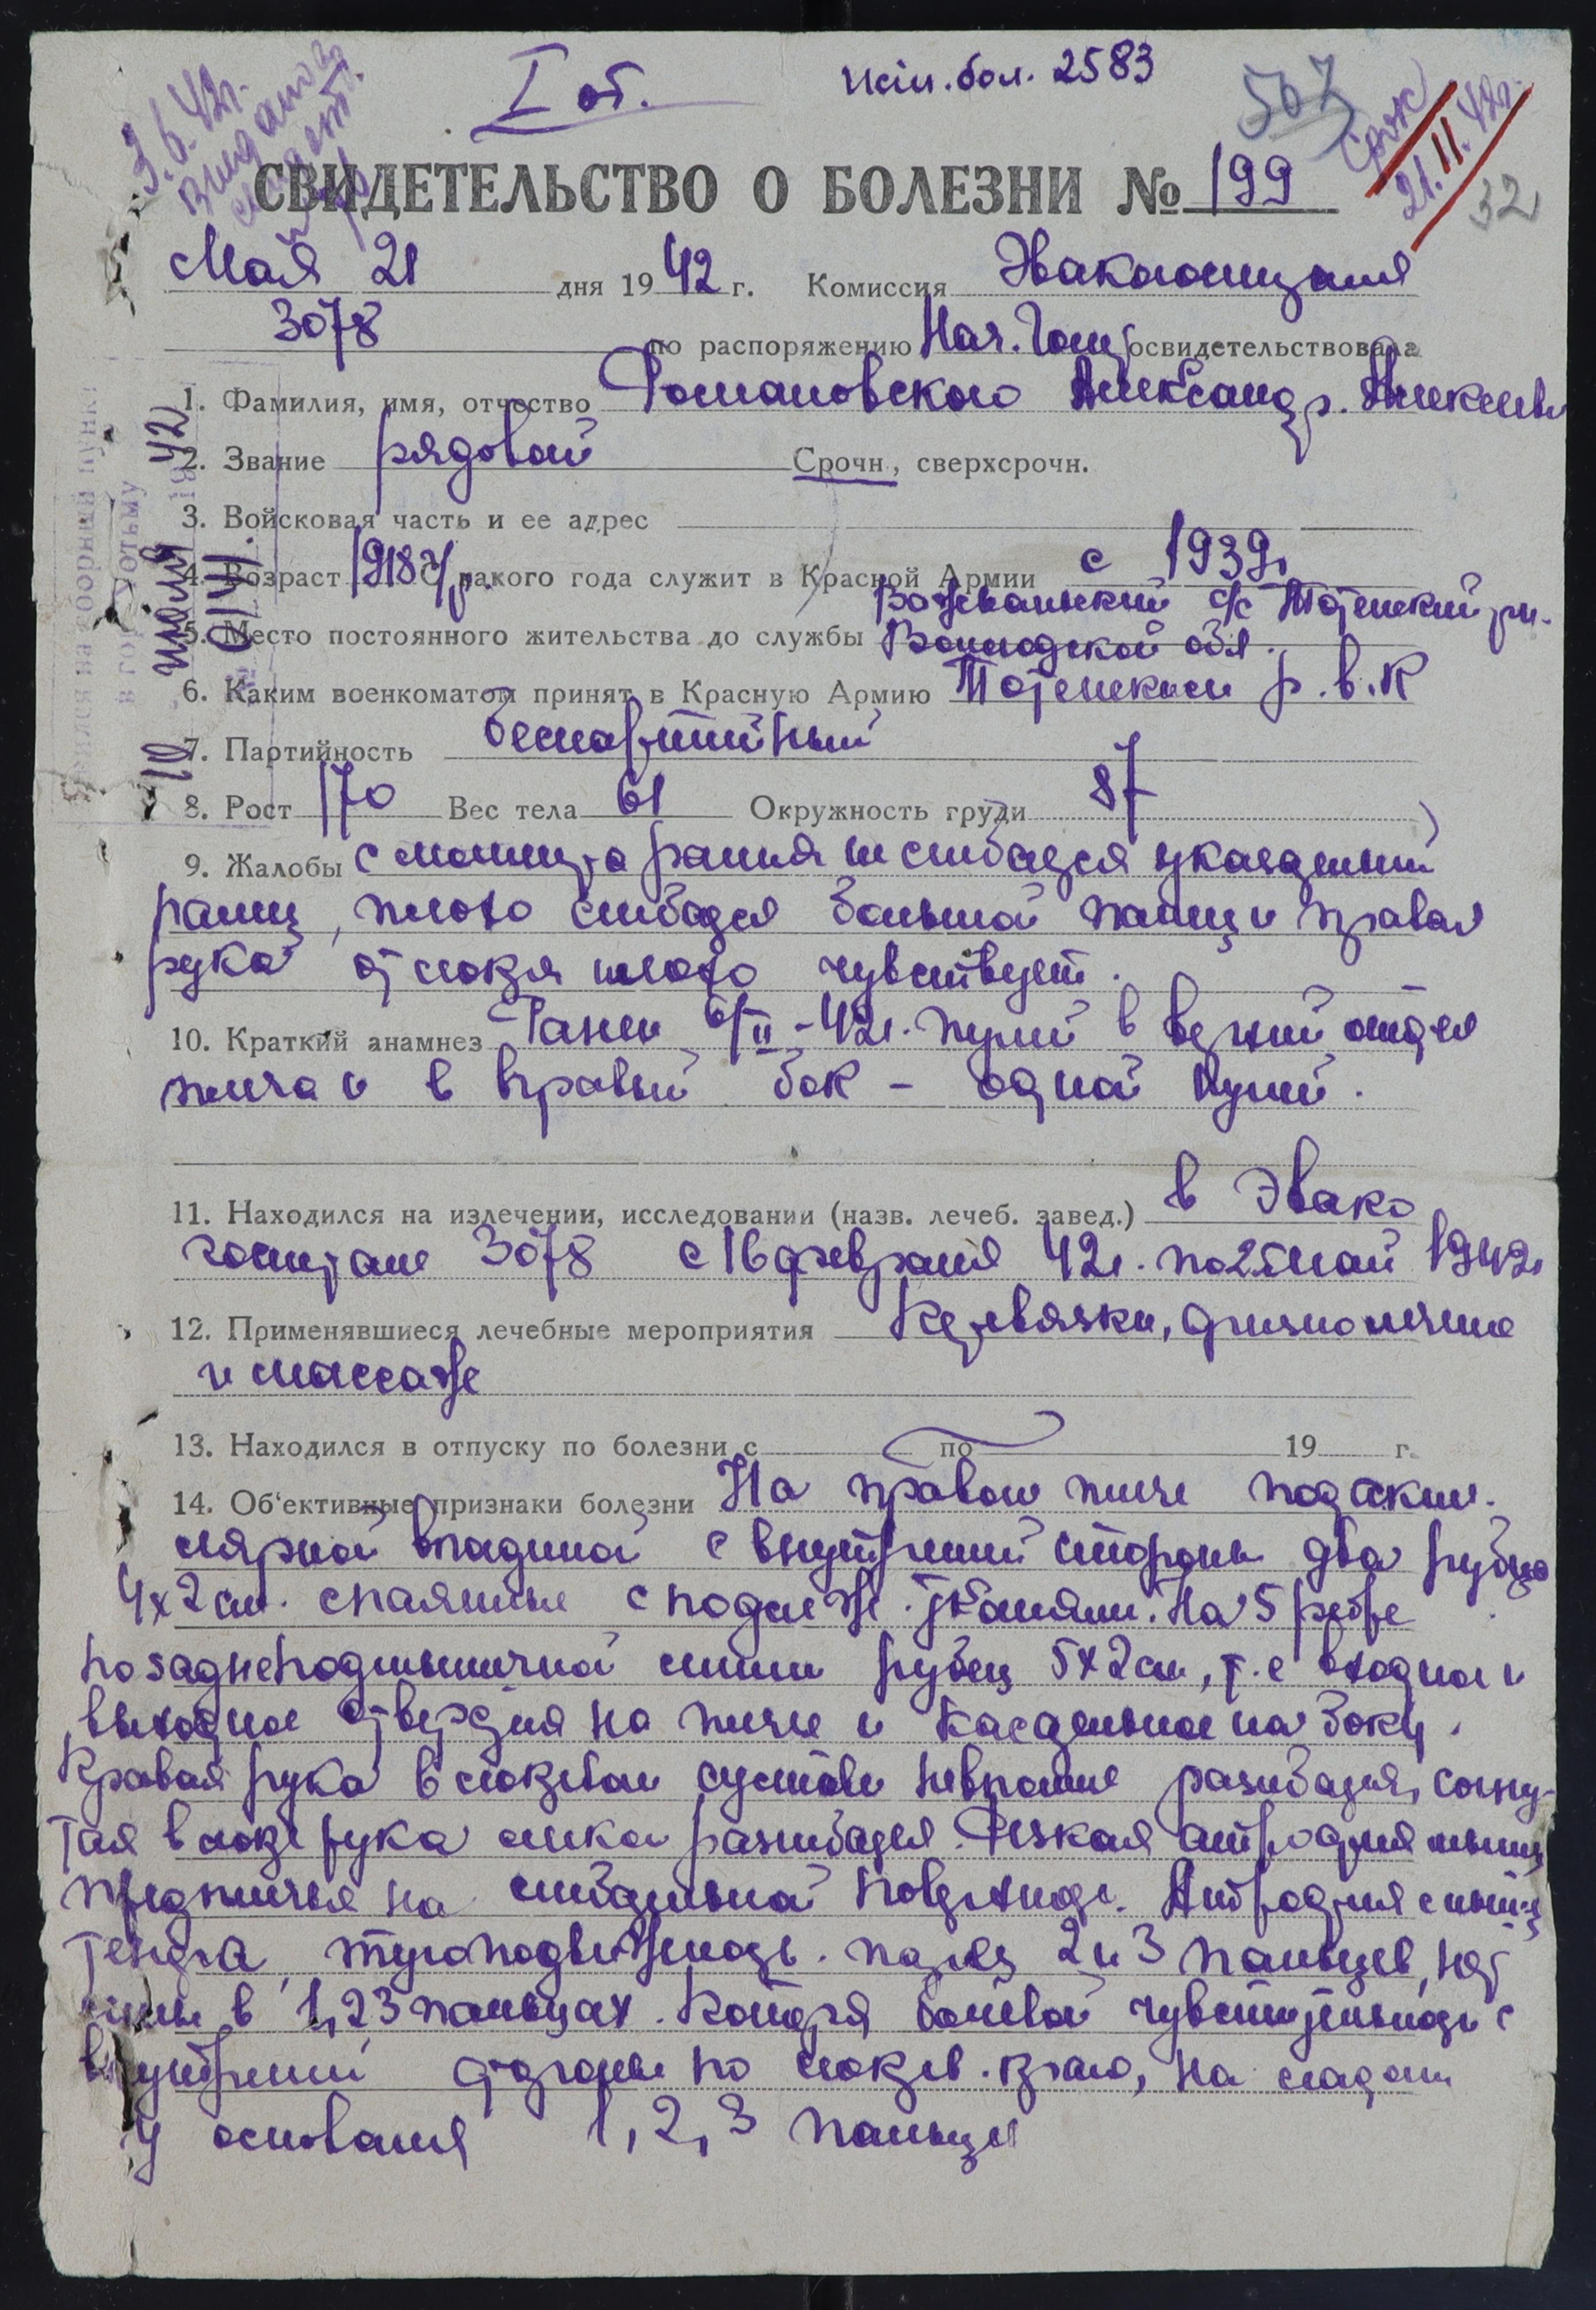 I от.
ист. бол. 2583
507
срок
21.11.42г.
32
3.6.42г.
СВИДЕТЕЛЬСТВО О БОЛЕЗНИ № 199
Мая 21 дня 1942 г. Комиссия Эвакогоспиталя
3078 по распоряжению Нач. Госп. освидетельствовала
1. Фамилия, имя, отчество Романовского Александр. Алексеев
2. Звание рядовой Срочн., сверхсрочн.
3. Войсковая часть и ее адрес
4. Возраст 1918 г. С какого года служит в Красной Армии с 1939г
Вожбальский с/с Тотемский рн.
5. Место постоянного жительства до службы Вологодской обл.
6. Каким военкоматом принят в Красную Армию Тотемским р.в.к
7. Партийность беспартийный
8. Рост 170 Вес тела 61 Окружность груди 87
9. Жалобы с момента рания не сгибается указательный
палец, плохо сгибается большой палец и правая
рука от локтя плохо чувствует.
10. Краткий анамнез Ранен 6/II-42г. пулей в верхний отдел
плеча и в правый бок – одной пулей.
11. Находился на излечении, исследовании (назв. лечеб. завед.) в Эвако
госпитале 3078 с 16 февраля 42г. по 25 май 1942г
12. Применявшиеся лечебные мероприятия Перевязки, физиолечение
и массаж
13. Находился в отпуску по болезни с по 19 г.
14. Об'ективные признаки болезни На правом плече под аксил-
лярной впадиной с внутренней стороны два рубца
4х2см. спаянные с подлеж. тканями. На 5 ребре
по заднеподмышечной линии рубец 5х2см, т.е входное и
выходное отверстия на плече и касательное на боку.
Правая рука в локтевом суставе не вполне разгибается, согну-
тая в локте рука слабо разгибается. Резкая атрофия мышц
предплечья на сгибательной поверхности. Атрофия мышц
тенора, тугоподвижность 2 и 3 пальцев, нет
в 1,2 3 пальцах. Потеря болевой чувствительности с
внутренней стороны по локтев. краю, на ладони
у основания 1, 2, 3 пальцы
явился на сборный пункт
в гор. Тотьму
10 июля 1942
№ 0141.